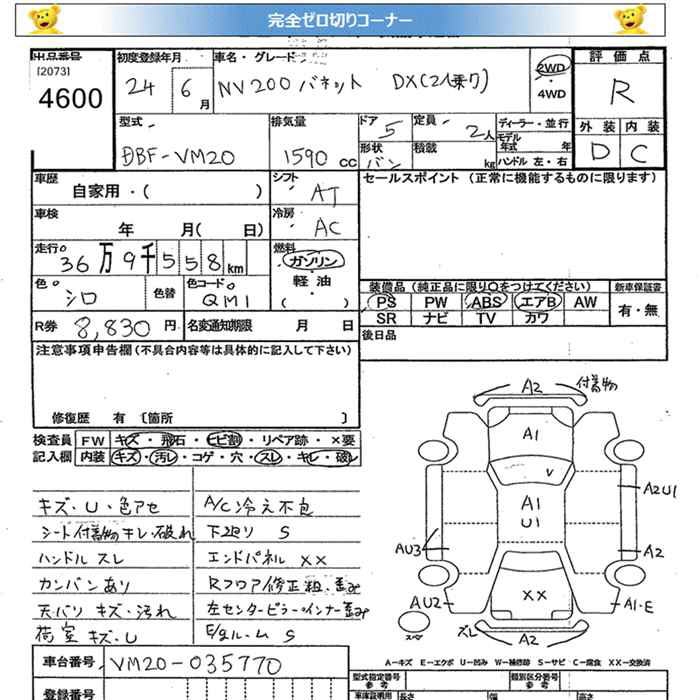 完全ゼロ切りコーナー
出品番号
[2073]
4600
初度登録年月
24 6月
車名・グレード
NV200 バネット DX(2人乗り)
2WD
・4WD
評価点
R
外装 内装
D C
型式
DBF-VM20
排気量
1590 cc
ドア 5
形状 バン
定員 2人
積載 kg
ディーラー・並行
モデル年式 年
ハンドル 左・右
車歴
自家用・( )
シフト AT
セールスポイント (正常に機能するものに限ります)
車検
年 月( 日)
冷房 AC
走行
36万9千558km
燃料
ガソリン
軽油
( )
色 シロ
色替
色コード QM1
装備品 (純正品に限り○をつけてください)
新車保証書
PS PW ABS エアB AW
有・無
SR ナビ TV カワ
R券 8,830円
名変通知期限 月 日
後日品
注意事項申告欄 (不具合内容等は具体的に記入して下さい)
修復歴 有 〔箇所 〕
検査員 FW キズ・飛石・ヒビ割・リペア跡・×要
記入欄 内装 キズ・汚レ・コゲ・穴・スレ・キレ・破レ
キズ・U・色アセ
シート付着物キレ・破れ
ハンドル スレ
カンバンあり
天バリ キズ・汚れ
荷室 キズ・U
A/C冷え不良
下廻り S
エンドパネル ××
Rフロア修正粗、歪み
左センターピラーインナー歪み
E/gルーム S
A2 付着物
A1
V
A1
U1
A2U1
AU3
A2
××
AU2
A1・E
スペア
ズレ
A2
A-キズ E-エクボ U-凹み W-補修跡 S-サビ C-腐食 XX-交換済
車台番号 VM20-035770
登録番号
型式指定番号
参考
類別区分番号
参考
車庫証明用
参考
長さ
幅
高さ